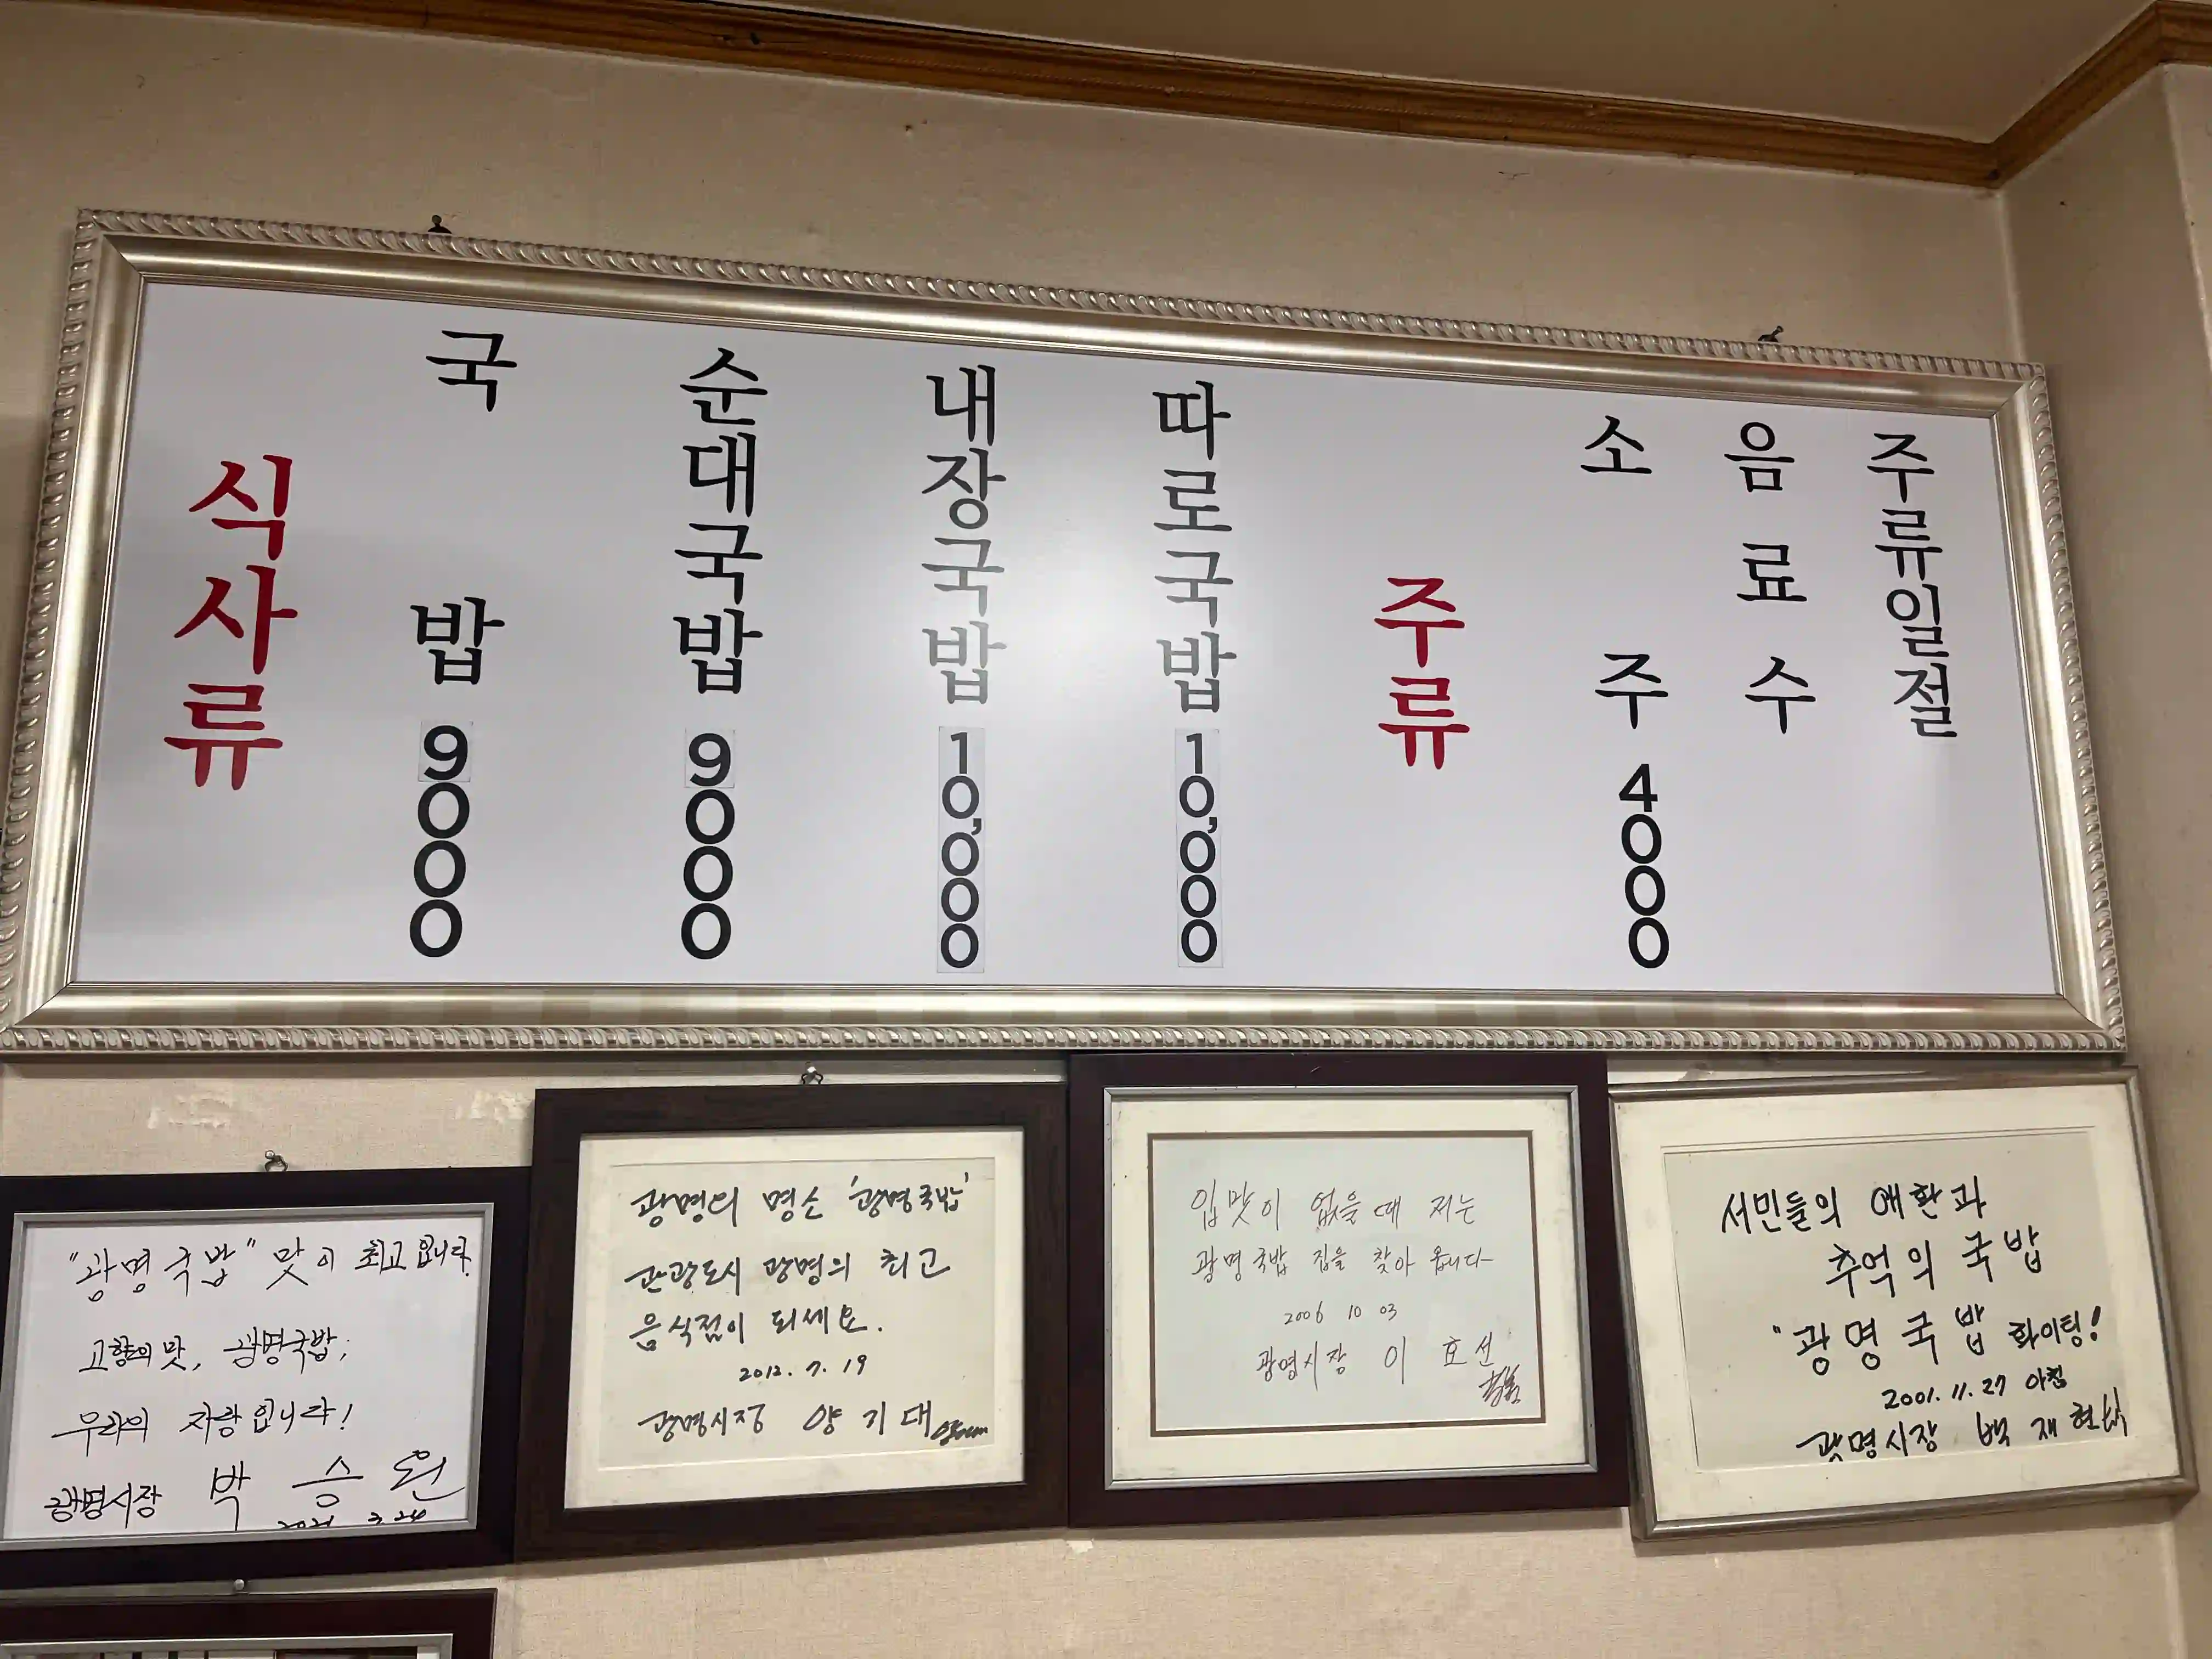 식사류
국밥 9000
순대국밥 9000
내장국밥 10,000
따로국밥 10,000
주류
소주 4000
음료수
주류일절
"광명국밥" 맛이 최고입니다.
고향의 맛, 광명국밥;
우리의 자랑입니다!
광명시장 박승원
2021 3.24
광명의 명소 '광명국밥'
관광도시 광명의 최고
음식점이 되세요.
2012. 7. 19
광명시장 양기대
입맛이 없을 때 저는
광명국밥 집을 찾아 옵니다
2006 10 03
광명시장 이효선
서민들의 애환과
추억의 국밥
"광명국밥 화이팅!
2001. 11. 27 아침
광명시장 백재현